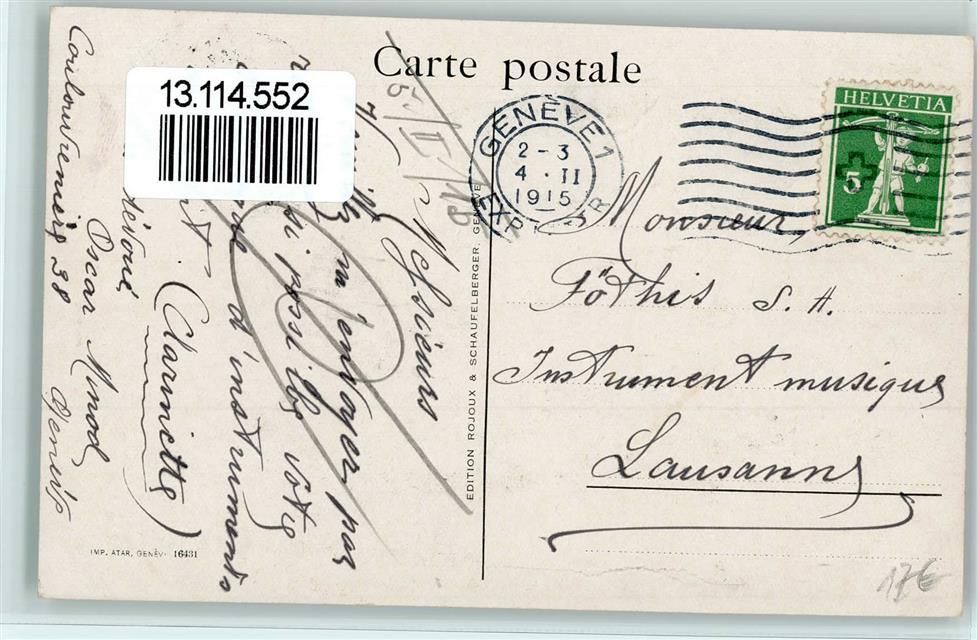 Carte postale
13.114.552
GENÈVE 1
2-3
4.II
1915
EXP.
HELVETIA
5
Monsieur
Föthis S. A.
Instrument musique
Lausanne
5/II/15
Messieurs
m'envoyer par
si possible votre
d'instruments
(Clarinette)
dévoué
Oscar Monod
Coulouvrenière 38
Genève
EDITION ROJOUX & SCHAUFELBERGER, GENÈVE
IMP. ATAR, GENÈVE 16431
17€